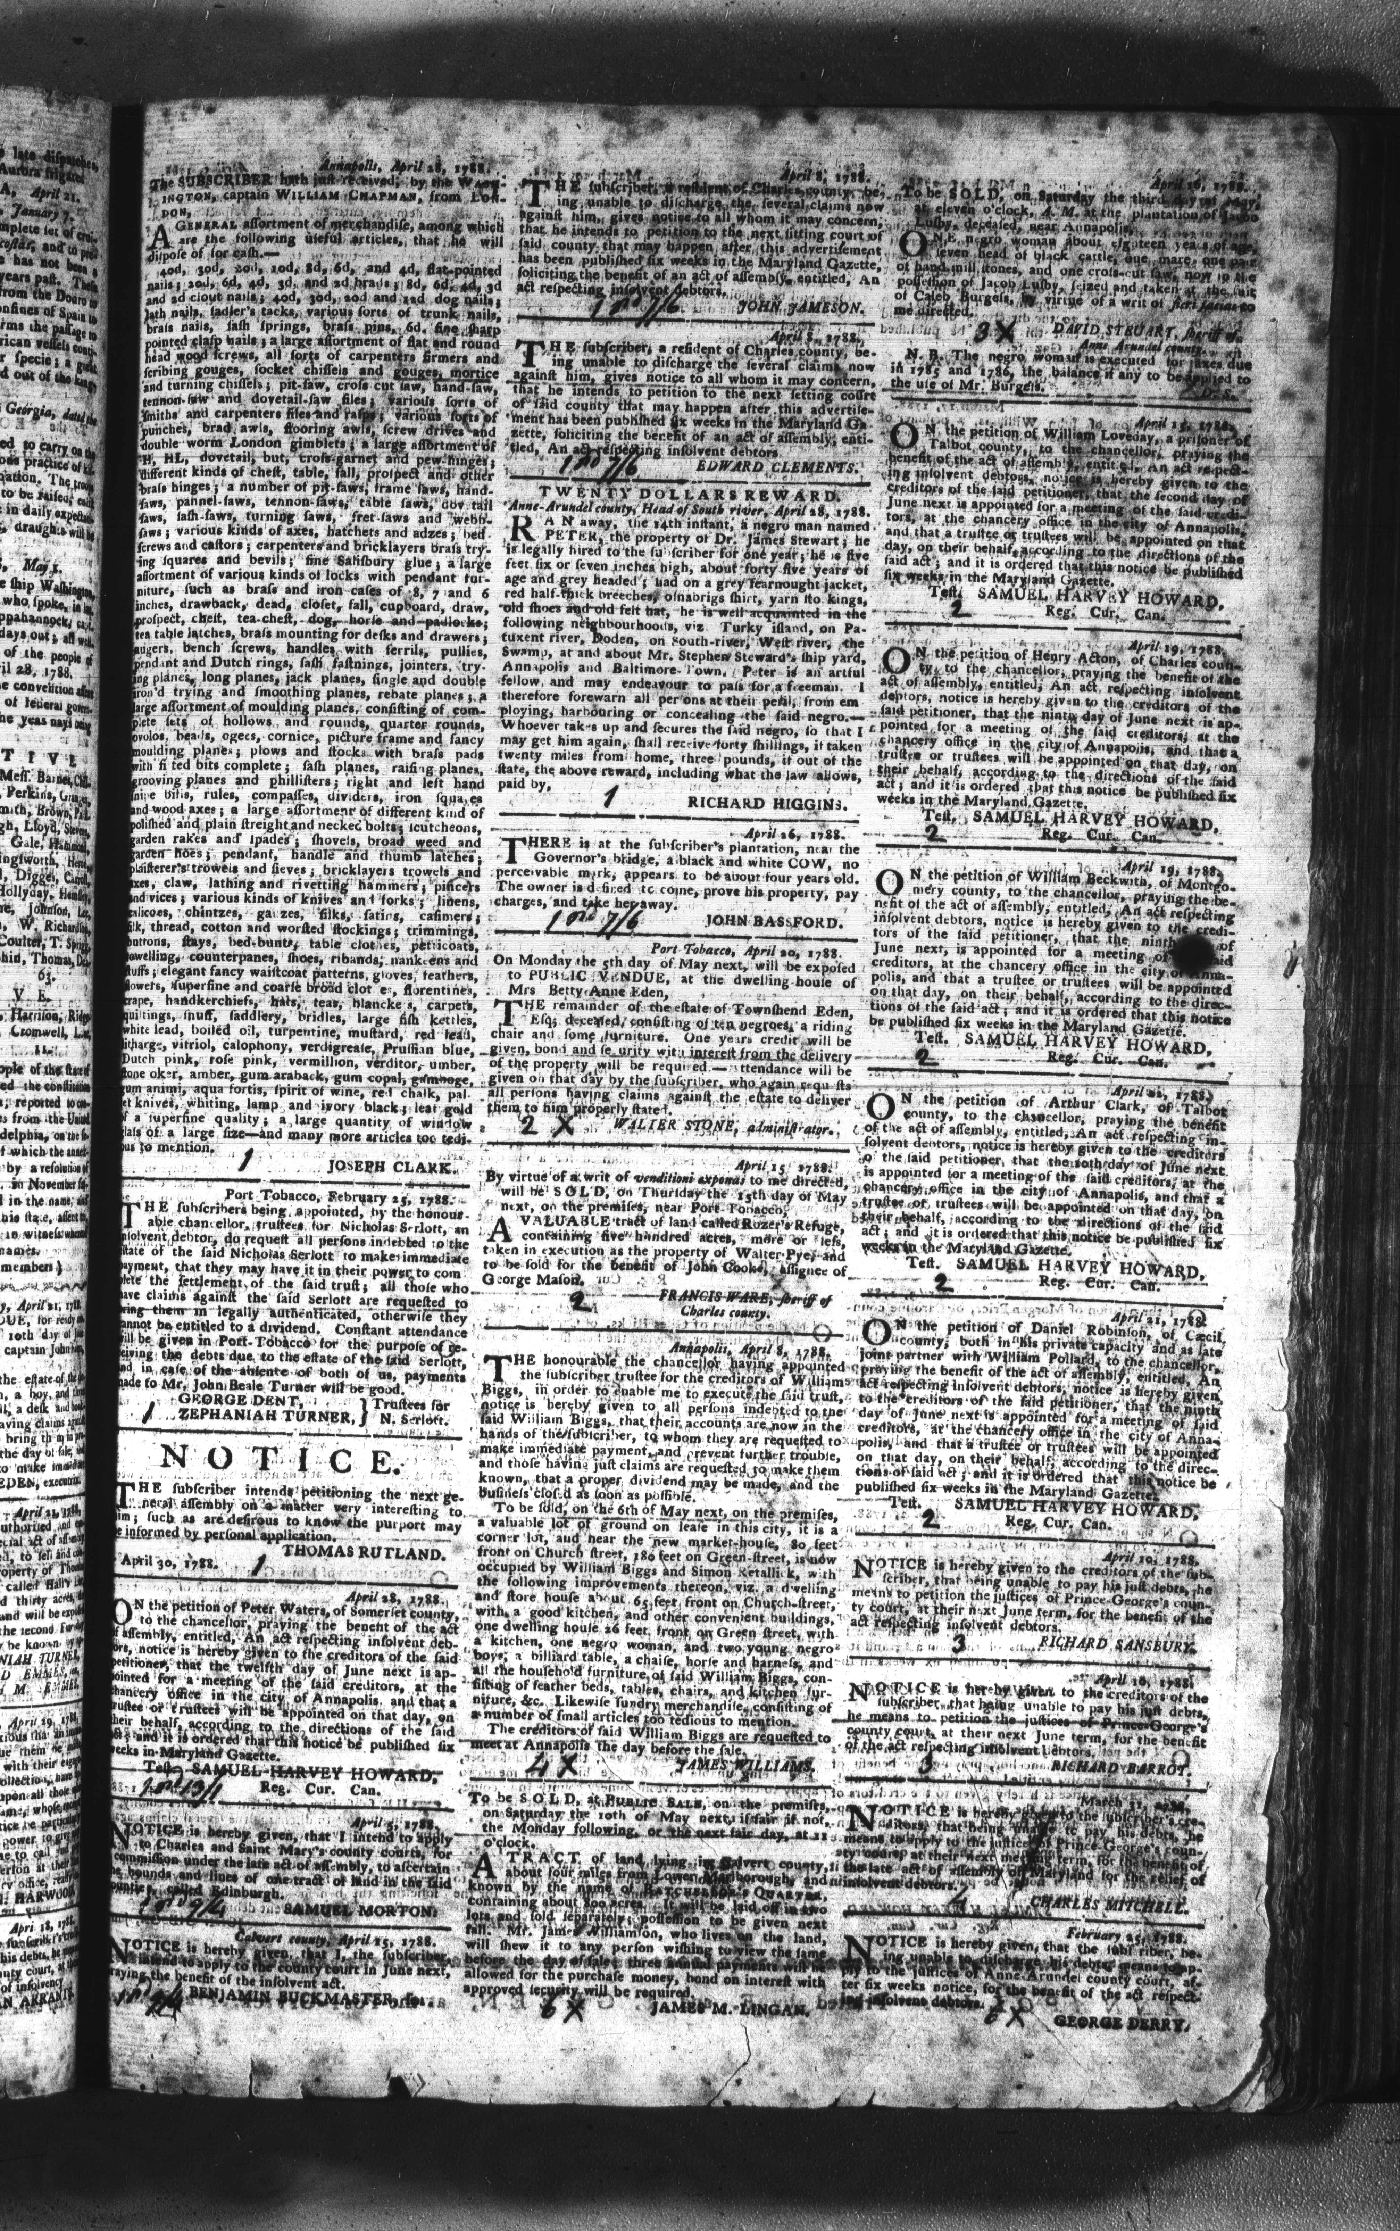 Annapolis, April 28, 1788.
The SUBSCRIBER hath just received, by the WASH-
INGTON, captain WILLIAM CHAPMAN, from LON-
DON,
A GENERAL assortment of merchandise, among which
are the following useful articles, that he will
dispose of for cash.—
40d, 30d, 20d, 10d, 8d, 6d, and 4d, flat-pointed
nails; 20d, 6d, 4d, 3d, and 2d brads; 8d, 6d, 4d, 3d
and 2d clout nails; 40d, 30d, 20d and 12d dog nails;
lath nails, sadler's tacks, various sorts of trunk nails,
brass nails, sash springs, brass pins, 6d. fine sharp
pointed clasp nails; a large assortment of flat and round
head wood screws, all sorts of carpenters firmers and
scribing gouges, socket chissels and gouges, mortice
and turning chissels; pit-saw, cross cut saw, hand-saw,
tennon-saw and dovetail-saw files; various sorts of
smiths and carpenters files and rasps; various sorts of
punches, brad awls, flooring awls, screw drives and
double worm London gimblets; a large assortment of
H, HL, dovetail, but, cross-garnet and pew-hinges;
different kinds of chest, table, fall, prospect and other
brass hinges; a number of pit-saws, frame saws, hand-
saws, pannel-saws, tennon-saws, table saws, dov tail
saws, sash-saws, turning saws, fret-saws and webb-
saws; various kinds of axes, hatchets and adzes; bed
screws and castors; carpenters and bricklayers brass try-
ing squares and bevils; fine Salisbury glue; a large
assortment of various kinds of locks with pendant fur-
niture, such as brass and iron cases of 8, 7 and 6
inches, drawback, dead, closet, fall, cupboard, draw,
prospect, chest, tea-chest, dog, horse and padlocks;
tea table latches, brass mounting for desks and drawers;
augers, bench screws, handles with ferrils, pullies,
pendant and Dutch rings, sash fastnings, jointers, try-
ing planes, long planes, jack planes, single and double
iron'd trying and smoothing planes, rebate planes; a
large assortment of moulding planes, consisting of com-
plete sets of hollows and rounds, quarter rounds,
ovolos, beads, ogees, cornice, picture frame and fancy
moulding planes; plows and stocks with brass pads
with fi ted bits complete; sash planes, raising planes,
grooving planes and phillisters; right and left hand
snipe bills, rules, compasses, dividers, iron squares
and wood axes; a large assortment of different kind of
polished and plain streight and necked bolts; scutcheons,
garden rakes and spades; shovels, broad weed and
garden hoes; pendant, handle and thumb latches;
plaisterer's trowels and sieves; bricklayers trowels and
axes, claw, lathing and rivetting hammers; pincers
and vices; various kinds of knives and forks; linens,
calicoes, chintzes, gauzes, silks, satins, casimers;
silk, thread, cotton and worsted stockings; trimmings,
buttons, stays, bed-bunts, table clothes, petticoats,
towelling, counterpanes, shoes, ribands, nankeens and
stuffs; elegant fancy waistcoat patterns, gloves, feathers,
flowers, superfine and coarse broad clot e, florentines,
crape, handkerchiefs, hats, teas, blankets, carpets,
quiltings, snuff, saddlery, bridles, large fish kettles,
white lead, boiled oil, turpentine, mustard, red lead,
litharge, vitriol, calophony, verdigreate, Prussian blue,
Dutch pink, rose pink, vermillion, verditor, umber,
stone oker, amber, gum araback, gum copal, gamboge,
gum animi, aqua fortis, spirit of wine, red chalk, pal-
et knives, whiting, lamp and ivory black; leaf gold
of a superfine quality; a large quantity of window
glass of a large size—and many more articles too tedi-
ous to mention.
1 JOSEPH CLARK.
Port Tobacco, February 25, 1788.
THE subscribers being appointed, by the honour-
able chancellor, trustees for Nicholas Serlott, an
insolvent debtor, do request all persons indebted to the
estate of the said Nicholas Serlott to make immediate
payment, that they may have it in their power to com
plete the settlement of the said trust; all those who
have claims against the said Serlott are requested to
bring them in legally authenticated, otherwise they
cannot be entitled to a dividend. Constant attendance
will be given in Port-Tobacco for the purpose of re-
ceiving the debts due to the estate of the said Serlott,
and in case of the absence of both of us, payments
made to Mr. John Beale Turner will be good.
GEORGE DENT, } Trustees for
1 ZEPHANIAH TURNER, } N. Serlott.
NOTICE.
THE subscriber intends petitioning the next ge-
neral assembly on a matter very interesting to
him; such as are desirous to know the purport may
be informed by personal application.
THOMAS RUTLAND.
April 30, 1788. 1
April 28, 1788.
ON the petition of Peter Waters, of Somerset county,
to the chancellor, praying the benefit of the act
of assembly, entitled, An act respecting insolvent deb-
tors, notice is hereby given to the creditors of the said
petitioner, that the twelfth day of June next is ap-
pointed for a meeting of the said creditors, at the
chancery office in the city of Annapolis, and that a
trustee or trustees will be appointed on that day, on
their behalf, according to the directions of the said
act; and it is ordered that this notice be published six
weeks in Maryland Gazette.
Test. SAMUEL HARVEY HOWARD,
Reg. Cur. Can.
April 5, 1788.
NOTICE is hereby given, that I intend to apply
to Charles and Saint Mary's county courts, for
commission under the late act of assembly, to ascertain
the bounds and lines of one tract of land in the said
counties, called Edinburgh.
SAMUEL MORTON.
Calvert county, April 15, 1788.
NOTICE is hereby given, that I, the subscriber,
intend to apply to the county court in June next,
praying the benefit of the insolvent act.
BENJAMIN BUCKMASTER,
April 8, 1788.
THE subscriber, a resident of Charles county, be-
ing unable to discharge the several claims now
against him, gives notice to all whom it may concern,
that he intends to petition to the next sitting court of
said county that may happen after this advertisement
has been published six weeks in the Maryland Gazette,
soliciting the benefit of an act of assembly, entitled, An
act respecting insolvent debtors.
JOHN JAMESON.
April 8, 1788.
THE subscriber, a resident of Charles county, be-
ing unable to discharge the several claims now
against him, gives notice to all whom it may concern,
that he intends to petition to the next setting court
of said county that may happen after this advertise-
ment has been published six weeks in the Maryland Ga
zette, soliciting the benefit of an act of assembly, enti-
tled, An act respecting insolvent debtors.
EDWARD CLEMENTS.
TWENTY DOLLARS REWARD.
Anne-Arundel county, Head of South river, April 28, 1788.
RAN away, the 14th instant, a negro man named
PETER, the property of Dr. James Stewart; he
is legally hired to the subscriber for one year; he is five
feet six or seven inches high, about forty five years of
age and grey headed; had on a grey fearnought jacket,
red half-thick breeches, osnabrigs shirt, yarn sto kings,
old shoes and old felt hat, he is well acquainted in the
following neighbourhoods, viz. Turky island, on Pa-
tuxent river, Doden, on South-river, West river, the
Swamp, at and about Mr. Stephen Steward's ship yard,
Annapolis and Baltimore-Town. Peter is an artful
fellow, and may endeavour to pass for a freeman. I
therefore forewarn all persons at their peril, from em
ploying, harbouring or concealing the said negro.—
Whoever takes up and secures the said negro, so that I
may get him again, shall receive forty shillings, if taken
twenty miles from home, three pounds, if out of the
state, the above reward, including what the law allows,
paid by,
1 RICHARD HIGGINS.
April 26, 1788.
THERE is at the subscriber's plantation, near the
Governor's bridge, a black and white COW, no
perceivable mark, appears to be about four years old.
The owner is desired to come, prove his property, pay
charges, and take her away.
JOHN BASSFORD.
Port Tobacco, April 20, 1788.
On Monday the 5th day of May next, will be exposed
to PUBLIC VENDUE, at the dwelling-house of
Mrs Betty Anne Eden,
THE remainder of the estate of Townshend Eden,
Esq; deceased, consisting of ten negroes, a riding
chair and some furniture. One years credit will be
given, bond and security with interest from the delivery
of the property will be required.— ttendance will be
given on that day by the subscriber, who again requests
all persons having claims against the estate to deliver
them to him properly stated.
2 X WALTER STONE, administrator.
April 15 1788.
By virtue of a writ of venditioni exponas to me directed,
will be SOLD, on Thursday the 15th day of May
next, on the premises, near Port Tobacco,
A VALUABLE tract of land called Rozer's Refuge,
containing five hundred acres, more or less,
taken in execution as the property of Walter Pye, and
to be sold for the benefit of John Cooke, assignee of
George Mason.
2 FRANCIS WARE, sheriff of
Charles county.
Annapolis, April 8, 1788.
THE honourable the chancellor having appointed
the subscriber trustee for the creditors of William
Biggs, in order to enable me to execute the said trust,
notice is hereby given to all persons indebted to the
said William Biggs, that their accounts are now in the
hands of the subscriber, to whom they are requested to
make immediate payment, and prevent further trouble,
and those having just claims are requested to make them
known, that a proper dividend may be made, and the
business closed as soon as possible.
To be sold, on the 6th of May next, on the premises,
a valuable lot of ground on lease in this city, it is a
corner lot, and near the new market-house, 80 feet
front on Church street, 180 feet on Green-street, is now
occupied by William Biggs and Simon Retallick, with
the following improvements thereon, viz. a dwelling
and store house about 65 feet front on Church-street,
with a good kitchen, and other convenient buildings,
one dwelling house 26 feet front on Green street, with
a kitchen, one negro woman, and two young negro
boys; a billiard table, a chaise, horse and harness, and
all the household furniture of said William Biggs, con-
sisting of feather beds, tables, chairs, and kitchen fur-
niture, &c. Likewise sundry merchandise, consisting of
a number of small articles too tedious to mention.
The creditors of said William Biggs are requested to
meet at Annapolis the day before the sale.
4 X JAMES WILLIAMS.
To be SOLD, at PUBLIC SALE, on the premises,
on Saturday the 10th of May next, if fair if not,
the Monday following, or the next fair day, at 11
o'clock.
A TRACT of land lying in Calvert county,
about four miles from Lower Marlborough, and
known by the name of BATCHELOR'S QUARTER,
containing about 800 acres. It will be laid off in two
lots and sold separately; possession to be given next
fall. Mr. James Williamson, who lives on the land,
will shew it to any person wishing to view the same
before the day of sale; three annual payments will be
allowed for the purchase money, bond on interest with
approved security will be required.
6 X JAMES M. LINGAN.
April 16, 1788.
To be SOLD, on Saturday the third day of May,
at eleven o'clock, A. M. at the plantation of Jacob
Lusby, deceased, near Annapolis,
ONE negro woman about eighteen years of age,
seven head of black cattle, one mare, one pair
of hand mill stones, and one cross-cut saw, now in the
possession of Jacob Lusby, seized and taken at the suit
of Caleb Burgess, by virtue of a writ of fieri facias to
me directed.
3 X DAVID STEUART, sheriff of
Anne Arundel county.
N. B. The negro woman is executed for taxes due
in 1785 and 1786, the balance if any to be applied to
the use of Mr. Burgess.
D. S.
April 15, 1788.
ON the petition of William Loveday, a prisoner of
Talbot county, to the chancellor, praying the
benefit of the act of assembly, entitled, An act respect-
ing insolvent debtors, notice is hereby given to the
creditors of the said petitioner, that the second day of
June next is appointed for a meeting of the said credi-
tors, at the chancery office in the city of Annapolis,
and that a trustee or trustees will be appointed on that
day, on their behalf, according to the directions of the
said act; and it is ordered that this notice be published
six weeks in the Maryland Gazette.
Test. SAMUEL HARVEY HOWARD,
2 Reg. Cur. Can.
April 19, 1788.
ON the petition of Henry Acton, of Charles coun-
ty, to the chancellor, praying the benefit of the
act of assembly, entitled, An act respecting insolvent
debtors, notice is hereby given to the creditors of the
said petitioner, that the ninth day of June next is ap-
pointed for a meeting of the said creditors, at the
chancery office in the city of Annapolis, and that a
trustee or trustees will be appointed on that day, on
their behalf, according to the directions of the said
act; and it is ordered that this notice be published six
weeks in the Maryland Gazette.
Test. SAMUEL HARVEY HOWARD,
2 Reg. Cur. Can.
April 19, 1788.
ON the petition of William Beckwith, of Montgo-
mery county, to the chancellor, praying the be-
nefit of the act of assembly, entitled, An act respecting
insolvent debtors, notice is hereby given to the credi-
tors of the said petitioner, that the ninth of
June next, is appointed for a meeting of said
creditors, at the chancery office in the city of Anna-
polis, and that a trustee or trustees will be appointed
on that day, on their behalf, according to the direc-
tions of the said act; and it is ordered that this notice
be published six weeks in the Maryland Gazette.
Test. SAMUEL HARVEY HOWARD,
2 Reg. Cur. Can.
April 22, 1788.
ON the petition of Arthur Clark, of Talbot
county, to the chancellor, praying the benefit
of the act of assembly, entitled, An act respecting in-
solvent debtors, notice is hereby given to the creditors
o the said petitioner, that the 10th day of June next
is appointed for a meeting of the said creditors, at the
chancery office in the city of Annapolis, and that a
trustee or trustees will be appointed on that day, on
their behalf, according to the directions of the said
act; and it is ordered that this notice be published six
weeks in the Maryland Gazette.
Test. SAMUEL HARVEY HOWARD,
2 Reg. Cur. Can.
April 21, 1788.
ON the petition of Daniel Robinson, of Cæcil
county, both in his private capacity and as late
joint partner with William Pollard, to the chancellor,
praying the benefit of the act of assembly, entitled, An
act respecting insolvent debtors, notice is hereby given
to the creditors of the said petitioner, that the ninth
day of June next is appointed for a meeting of said
creditors, at the chancery office in the city of Anna-
polis, and that a trustee or trustees will be appointed
on that day, on their behalf, according to the direc-
tions of said act; and it is ordered that this notice be
published six weeks in the Maryland Gazette.
Test. SAMUEL HARVEY HOWARD,
2 Reg. Cur. Can.
April 10, 1788.
NOTICE is hereby given to the creditors of the sub-
scriber, that being unable to pay his just debts, he
means to petition the justices of Prince-George's coun-
ty court, at their next June term, for the benefit of the
act respecting insolvent debtors.
3 RICHARD SANSBURY.
April 10, 1788.
NOTICE is hereby given to the creditors of the
subscriber, that being unable to pay his just debts,
he means to petition the justices of Prince-George's
county court, at their next June term, for the benefit
of the act respecting insolvent debtors.
3 RICHARD BARROT.
March 31, 1788.
NOTICE is hereby given to the subscriber's cre-
ditors, that being unable to pay his debts, he
means to apply to the justices of Prince George's coun-
ty court at their next meeting term, for the benefit of
the late act of assembly of Maryland for the relief of
insolvent debtors.
4 CHARLES MITCHELL.
February 25, 1788.
NOTICE is hereby given, that the subscriber, be-
ing unable to discharge his debts, means to ap-
ply to the justices of Anne-Arundel county court, af-
ter six weeks notice, for the benefit of the act respect-
ing insolvent debtors.
6 X GEORGE DERRY.